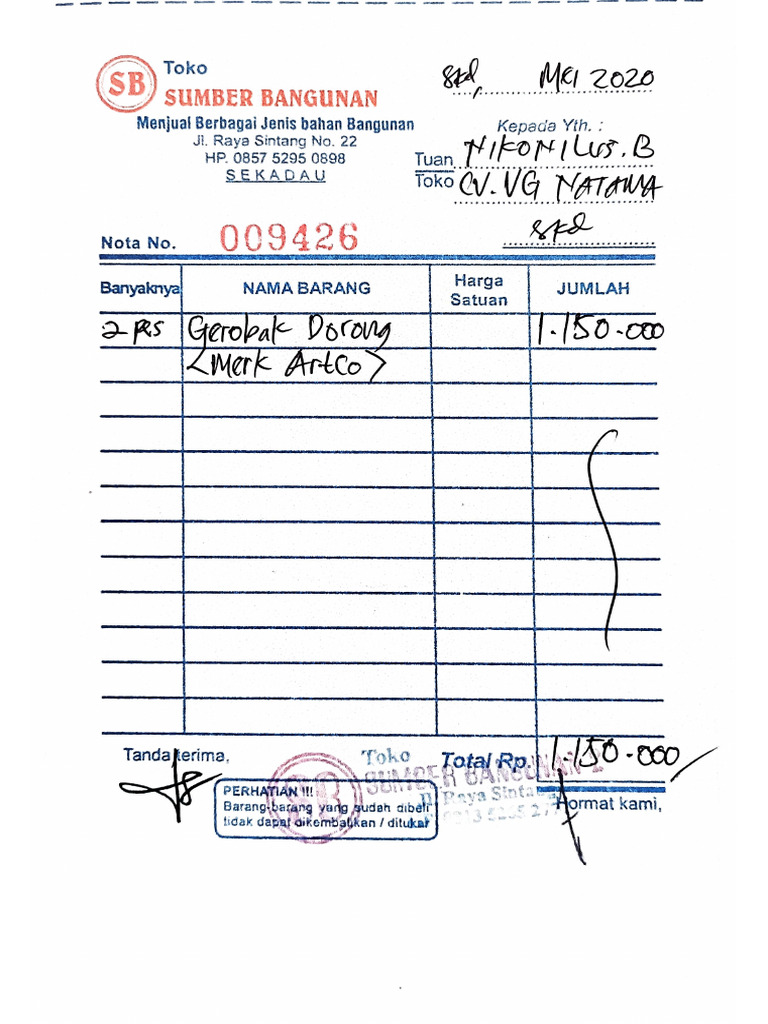 SB
Toko
SUMBER BANGUNAN
Menjual Berbagai Jenis bahan Bangunan
Jl. Raya Sintang No. 22
HP. 0857 5295 0898
SEKADAU
Skd, Mei 2020
Kepada Yth. :
Tuan NIKONILUS.B
Toko CV. VG NATAMA
skd
Nota No. 009426
Banyaknya NAMA BARANG Harga Satuan JUMLAH
2 pcs Gerobak Dorong 1.150.000
<Merk ArtCo>
Tanda terima,
Total Rp. 1.150.000
PERHATIAN !!!
Barang-barang yang sudah dibeli
tidak dapat dikembalikan / ditukar
Toko
SUMBER BANGUNAN
Jl. Raya Sintang
SB
Hormat kami,